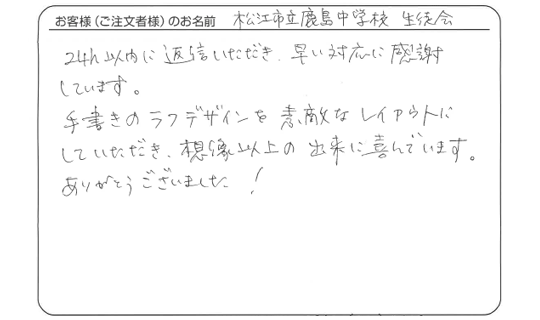 お客様（ご注文者様）のお名前 松江市立鹿島中学校 生徒会
24h以内に返信いただき、早い対応に感謝
しています。
手書きのラフデザインを素敵なレイアウトに
していただき、想像以上の出来に喜んでいます。
ありがとうございました！